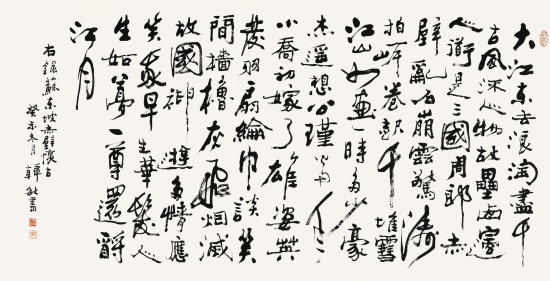 大江東去浪淘盡千
古風流人物故壘西邊
人道是三國周郎赤
壁亂石崩雲驚濤
拍岸卷起千堆雪
江山如畫一時多少豪
杰遥想公瑾當年
小喬初嫁了雄姿英
發羽扇綸巾談笑
間檣櫓灰飛烟滅
故國神遊多情應
笑我早生華髮人
生如夢一尊還酹
江月
右録蘇東坡赤壁懷古
癸未冬月書